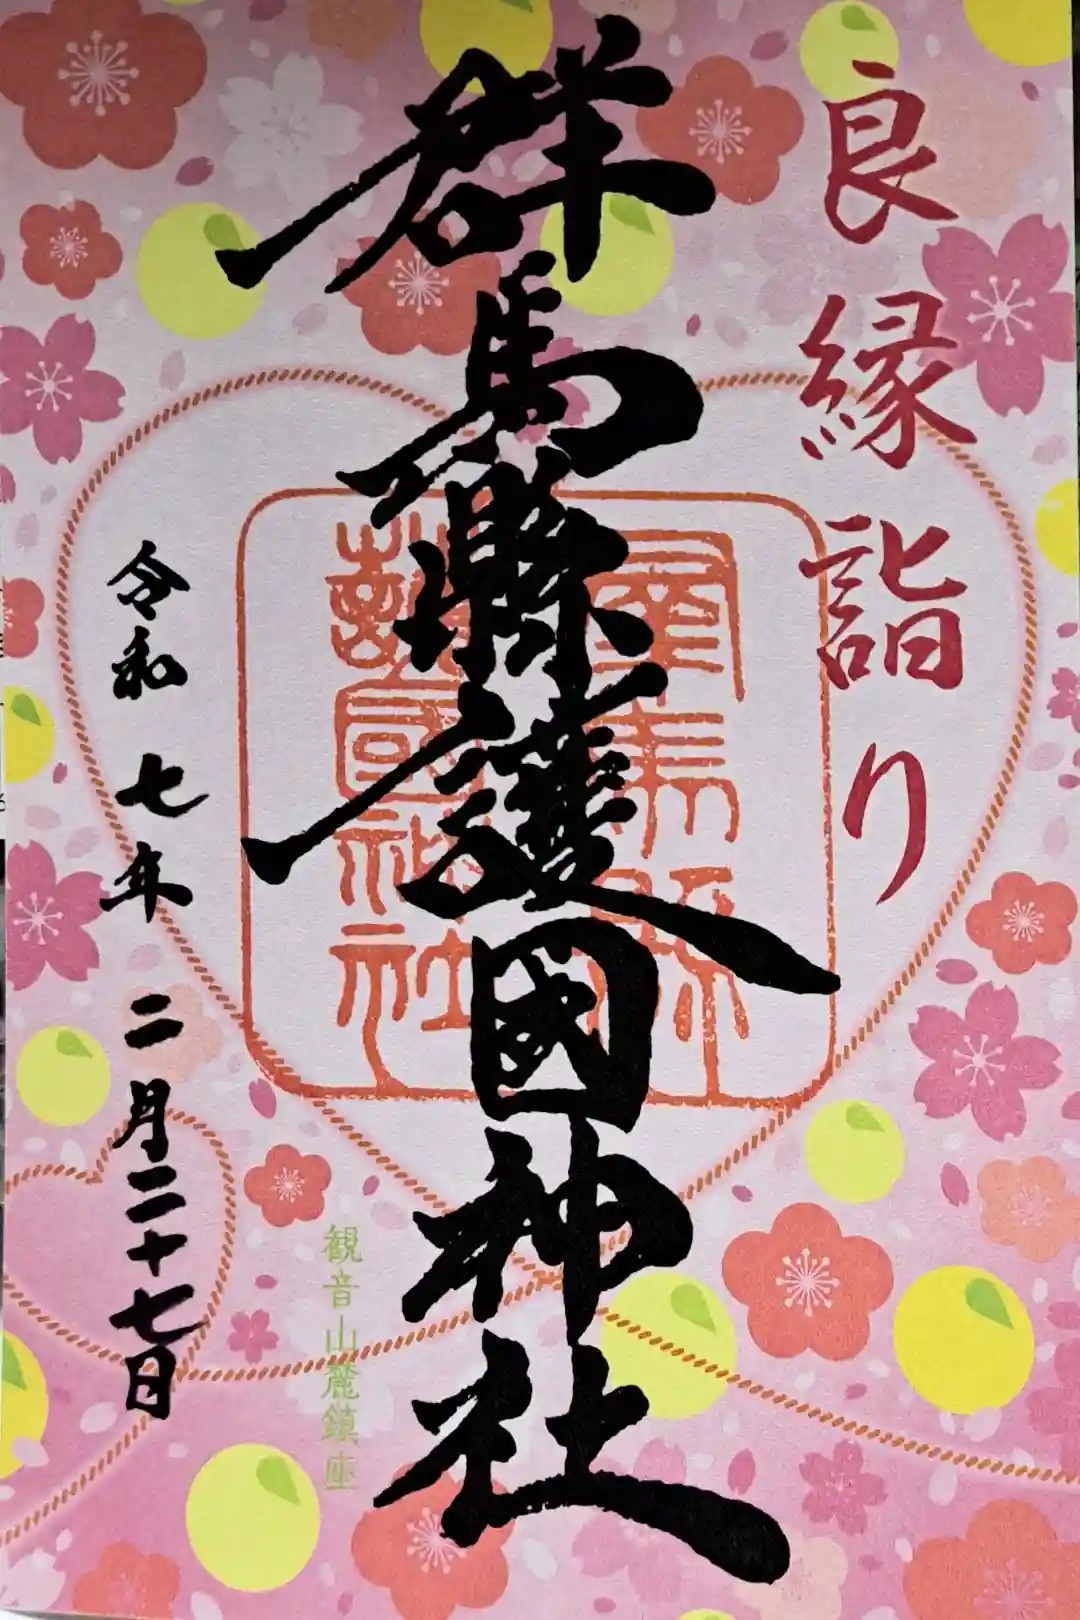 良縁詣り
群馬縣護國神社
群馬縣
護國神社
観音山麓鎮座
令和七年二月二十七日